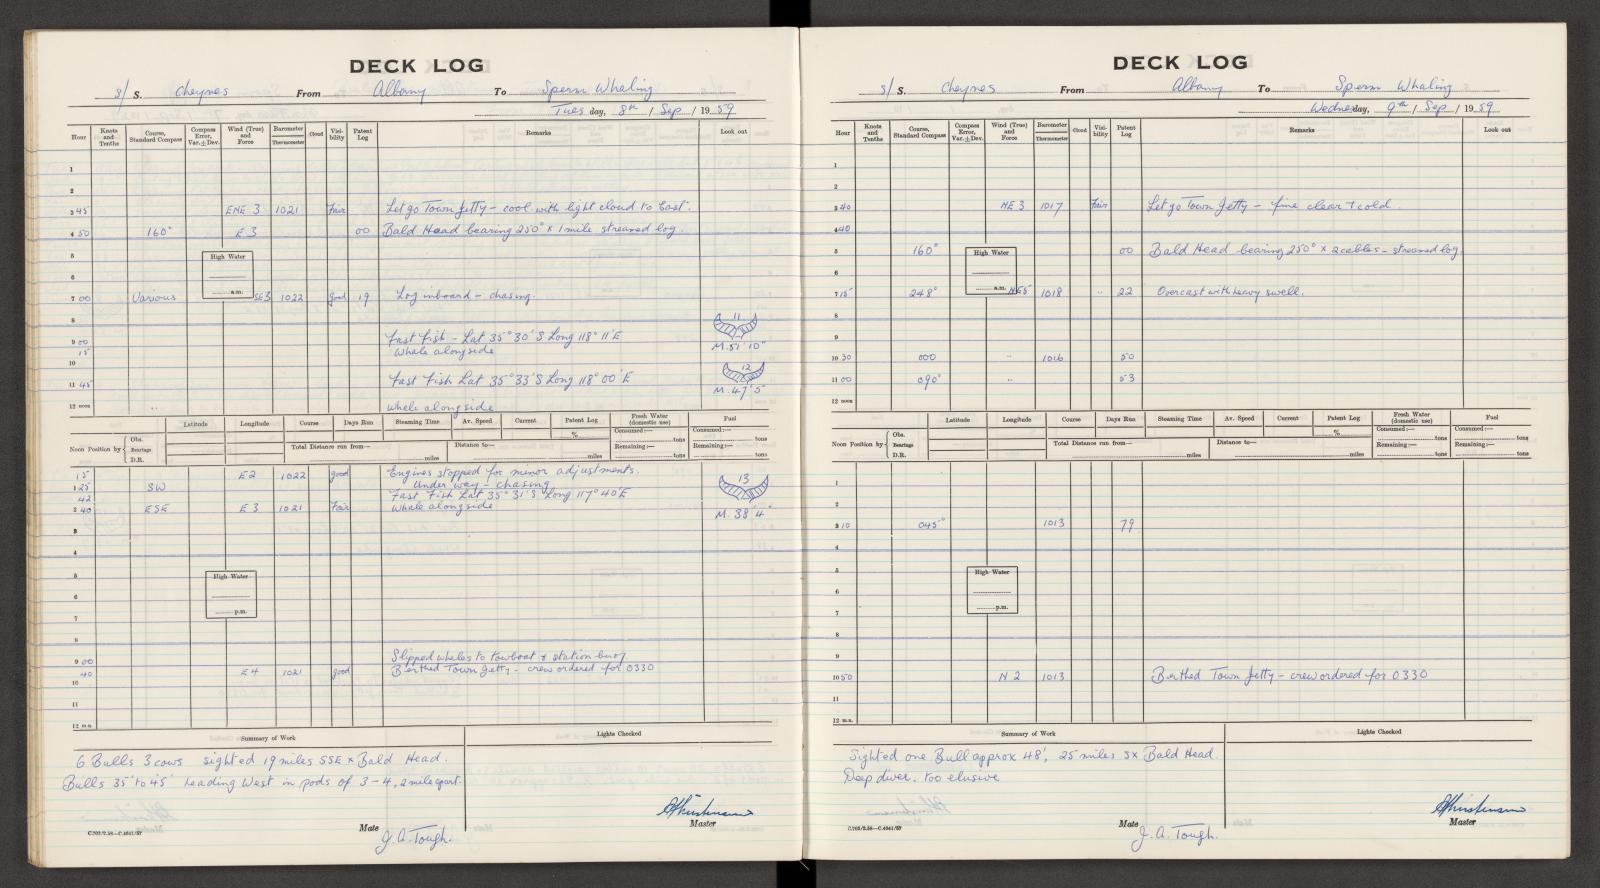 DECK LOG
s/ S. Cheynes From Albany To Sperm Whaling
Tues day, 8th / Sep / 19 59
Hour Knots and Tenths Course, Standard Compass Compass Error, Var. ± Dev. Wind (True) and Force Barometer Thermometer Cloud Visibility Patent Log Remarks Look out
1
2
3 45 ENE 3 1021 Fair Let go Town Jetty - cool with light cloud to East.
4 50 160° E 3 00 Bald Head bearing 250° x 1 mile streamed log.
5 High Water
6
7 00 Various a.m. SE3 1022 good 19 Log inboard - chasing.
8 11
9 00 Fast Fish - Lat 35° 30' S Long 118° 11' E
15 Whale alongside M. 51' 10"
10 12
11 45 Fast Fish Lat 35° 33' S Long 118° 00' E M. 47' 5"
12 noon whale alongside
Latitude Longitude Course Days Run Steaming Time Av. Speed Current Patent Log Fresh Water (domestic use) Fuel
% Consumed:— tons Consumed:— tons
Noon Position by Obs. Bearings D.R. Total Distance run from— miles Distance to— miles Remaining:— tons Remaining:— tons
1 5 E 2 1022 good Engines stopped for minor adjustments.
1 25 SW Under way - chasing 13
42 Fast Fish Lat 35° 31' S Long 117° 40' E
2 40 ESE E 3 1021 Fair Whale alongside M. 38' 4"
3
4
5 High Water
6
7 p.m.
8
9 00 Slipped whales to towboat & station buoy
40 E 4 1021 good Berthed Town Jetty - crew ordered for 0330
10
11
12 m.n.
Summary of Work Lights Checked
6 Bulls 3 cows sighted 19 miles SSE x Bald Head.
Bulls 35' to 45' heading West in pods of 3 - 4, 2 mile apart.
Mate J. A. Tough. Master
DECK LOG
s/ S. Cheynes From Albany To Sperm Whaling
Wednesday, 9th / Sep / 19 59
Hour Knots and Tenths Course, Standard Compass Compass Error, Var. ± Dev. Wind (True) and Force Barometer Thermometer Cloud Visibility Patent Log Remarks Look out
1
2
3 40 NE 3 1017 Fair Let go Town Jetty - fine clear + cold.
4 40
5 160° High Water 00 Bald Head bearing 250° x 2 cables - streamed log
6
7 15 248° a.m. NE5 1018 " 22 Overcast with heavy swell.
8
9
10 30 000 " 1016 50
11 00 090° " 53
12 noon
Latitude Longitude Course Days Run Steaming Time Av. Speed Current Patent Log Fresh Water (domestic use) Fuel
% Consumed:— tons Consumed:— tons
Noon Position by Obs. Bearings D.R. Total Distance run from— miles Distance to— miles Remaining:— tons Remaining:— tons
1
2
3 10 045° 1013 79
4
5 High Water
6
7 p.m.
8
9
10 50 N 2 1013 Berthed Town Jetty - crew ordered for 0330
11
12 m.n.
Summary of Work Lights Checked
Sighted one Bull approx 48', 25 miles S x Bald Head.
Deep diver. too elusive
Mate J. A. Tough. Master